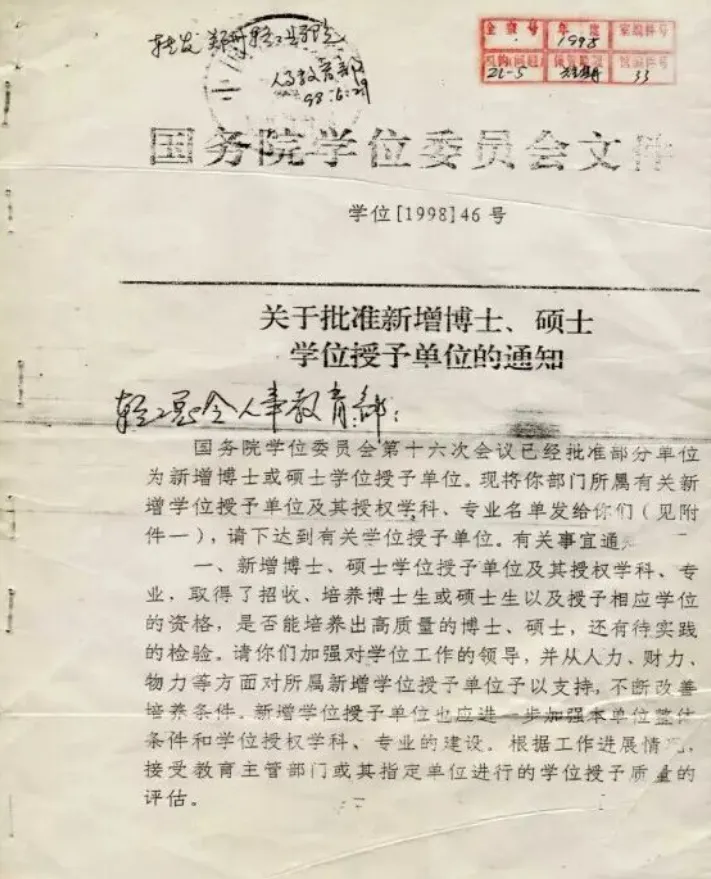 转发郑州轻工业学院
人事教育部
98.6.29
全宗号 年度 室编件号
1998
机构(问题) 保管期限 馆编件号
ZL-5 长期 33
国务院学位委员会文件
学位[1998]46号
关于批准新增博士、硕士
学位授予单位的通知
轻工总会人事教育部：
国务院学位委员会第十六次会议已经批准部分单位
为新增博士或硕士学位授予单位。现将你部门所属有关新
增学位授予单位及其授权学科、专业名单发给你们（见附
件一），请下达到有关学位授予单位。有关事宜通知
一、新增博士、硕士学位授予单位及其授权学科、专
业，取得了招收、培养博士生或硕士生以及授予相应学位
的资格，是否能培养出高质量的博士、硕士，还有待实践
的检验。请你们加强对学位工作的领导，并从人力、财力、
物力等方面对所属新增学位授予单位予以支持，不断改善
培养条件。新增学位授予单位也应进一步加强本单位整体
条件和学位授权学科、专业的建设。根据工作进展情况，
接受教育主管部门或其指定单位进行的学位授予质量的
评估。